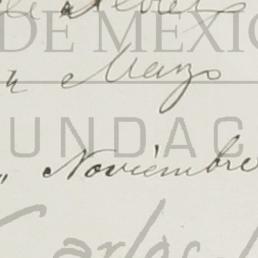 DE MÉXIC
" Marzo
UNDAC
" Noviembre
Carlos